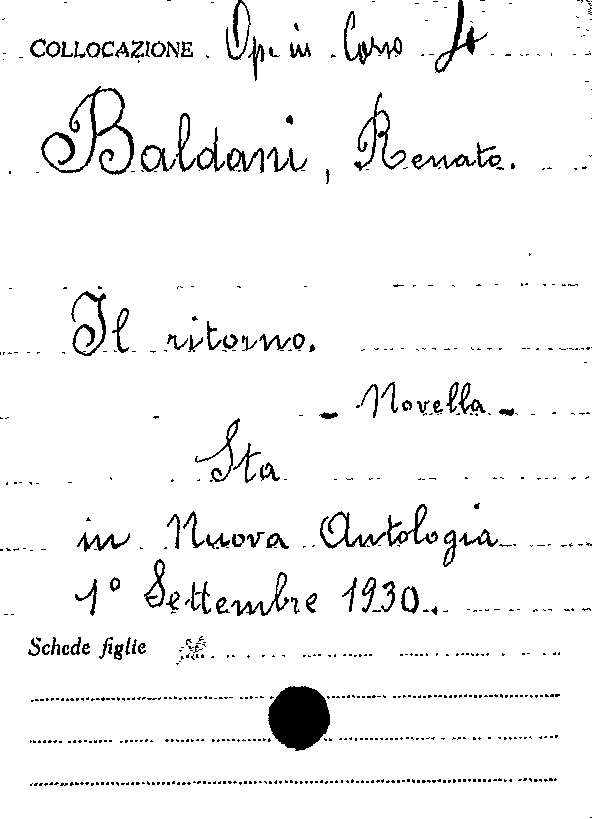 COLLOCAZIONE Op. in Corso 4
Baldani, Renato.
Il ritorno.
- Novella -
Sta
in Nuova Antologia
1º Settembre 1930.
Schede figlie